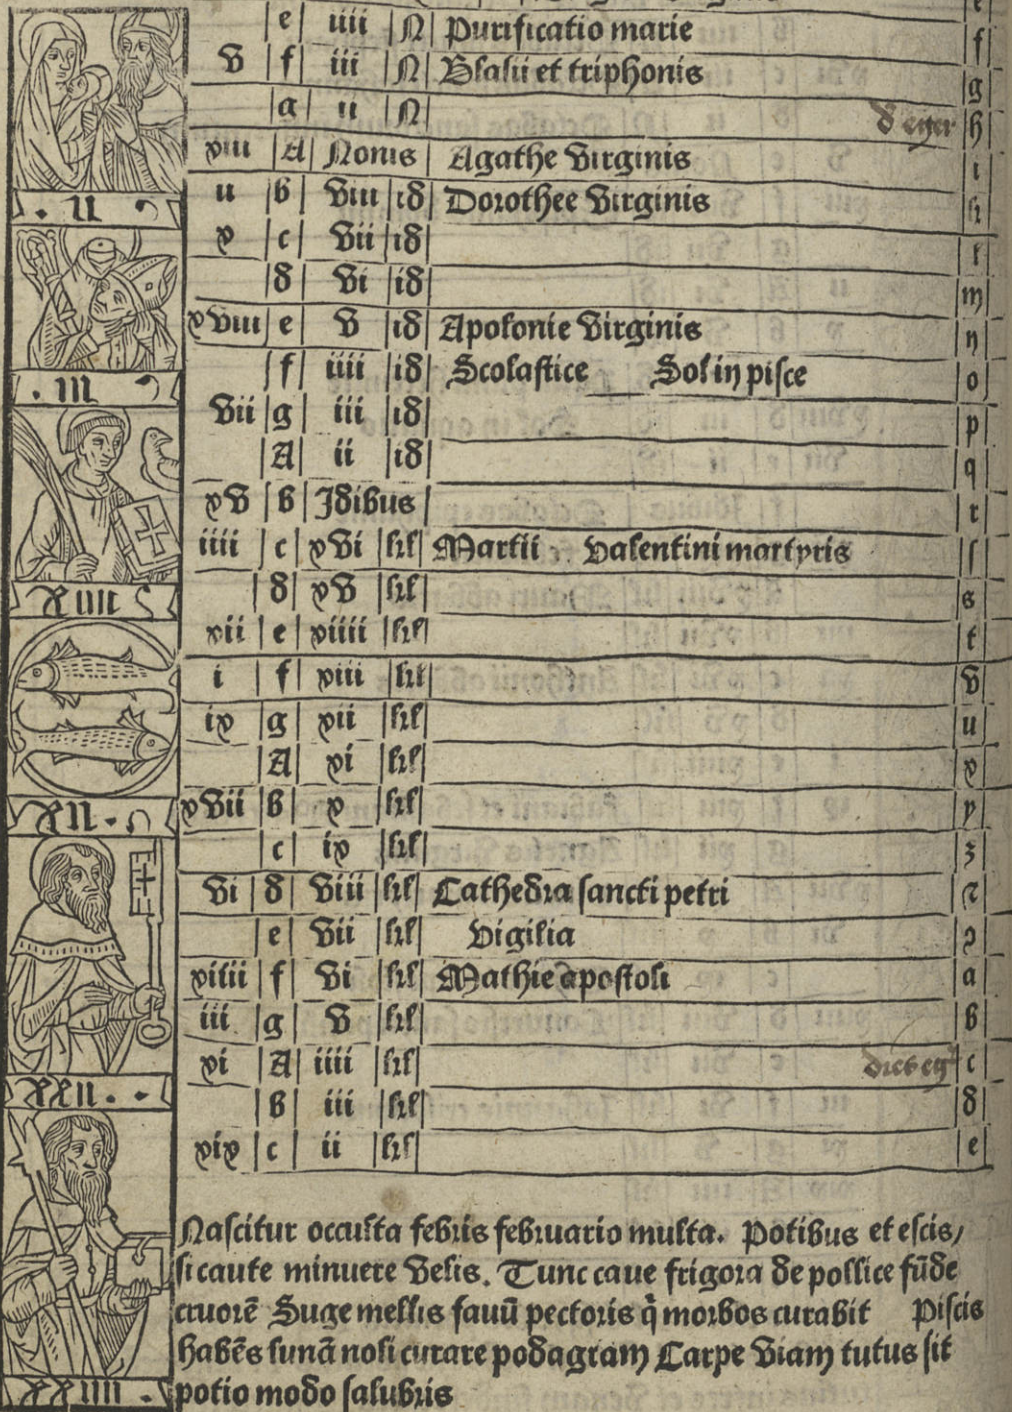 e iiii N Purificatio marie f
V f iii N Blasii et triphonis g
g ii N d eger h
xiii A Nonis Agathe Virginis i
ii b Viii id Dorothee Virginis k
x c Vii id l
d Vi id m
xViii e V id Apolonie Virginis n
f iiii id Scolastice Sol in pisce o
Vii g iii id p
A ii id q
xV b Idibus r
iiii c xVi kl Martii Valentini martyris ſ
d xV kl s
xii e xiiii kl t
i f xiii kl V
ix g xii kl u
A xi kl x
xVii b x kl y
c ix kl z
Vi d Viii kl Cathedra sancti petri
e Vii kl Vigilia
xiiii f Vi kl Mathie apostoli a
iii g V kl b
xi A iiii kl dies eg c
b iii kl d
xix c ii kl e
. II
. III
XIIII
XXII .
XXIIII .
Nascitur occulta febris februario multa. Potibus et escis/
si caute minuere Velis. Tunc caue frigora de pollice fūde
cruorē Suge mellis fauū pectoris q̄ morbos curabit Piscis
habēs lunā noli curare podagram Carpe Viam tutus sit
potio modo salubris